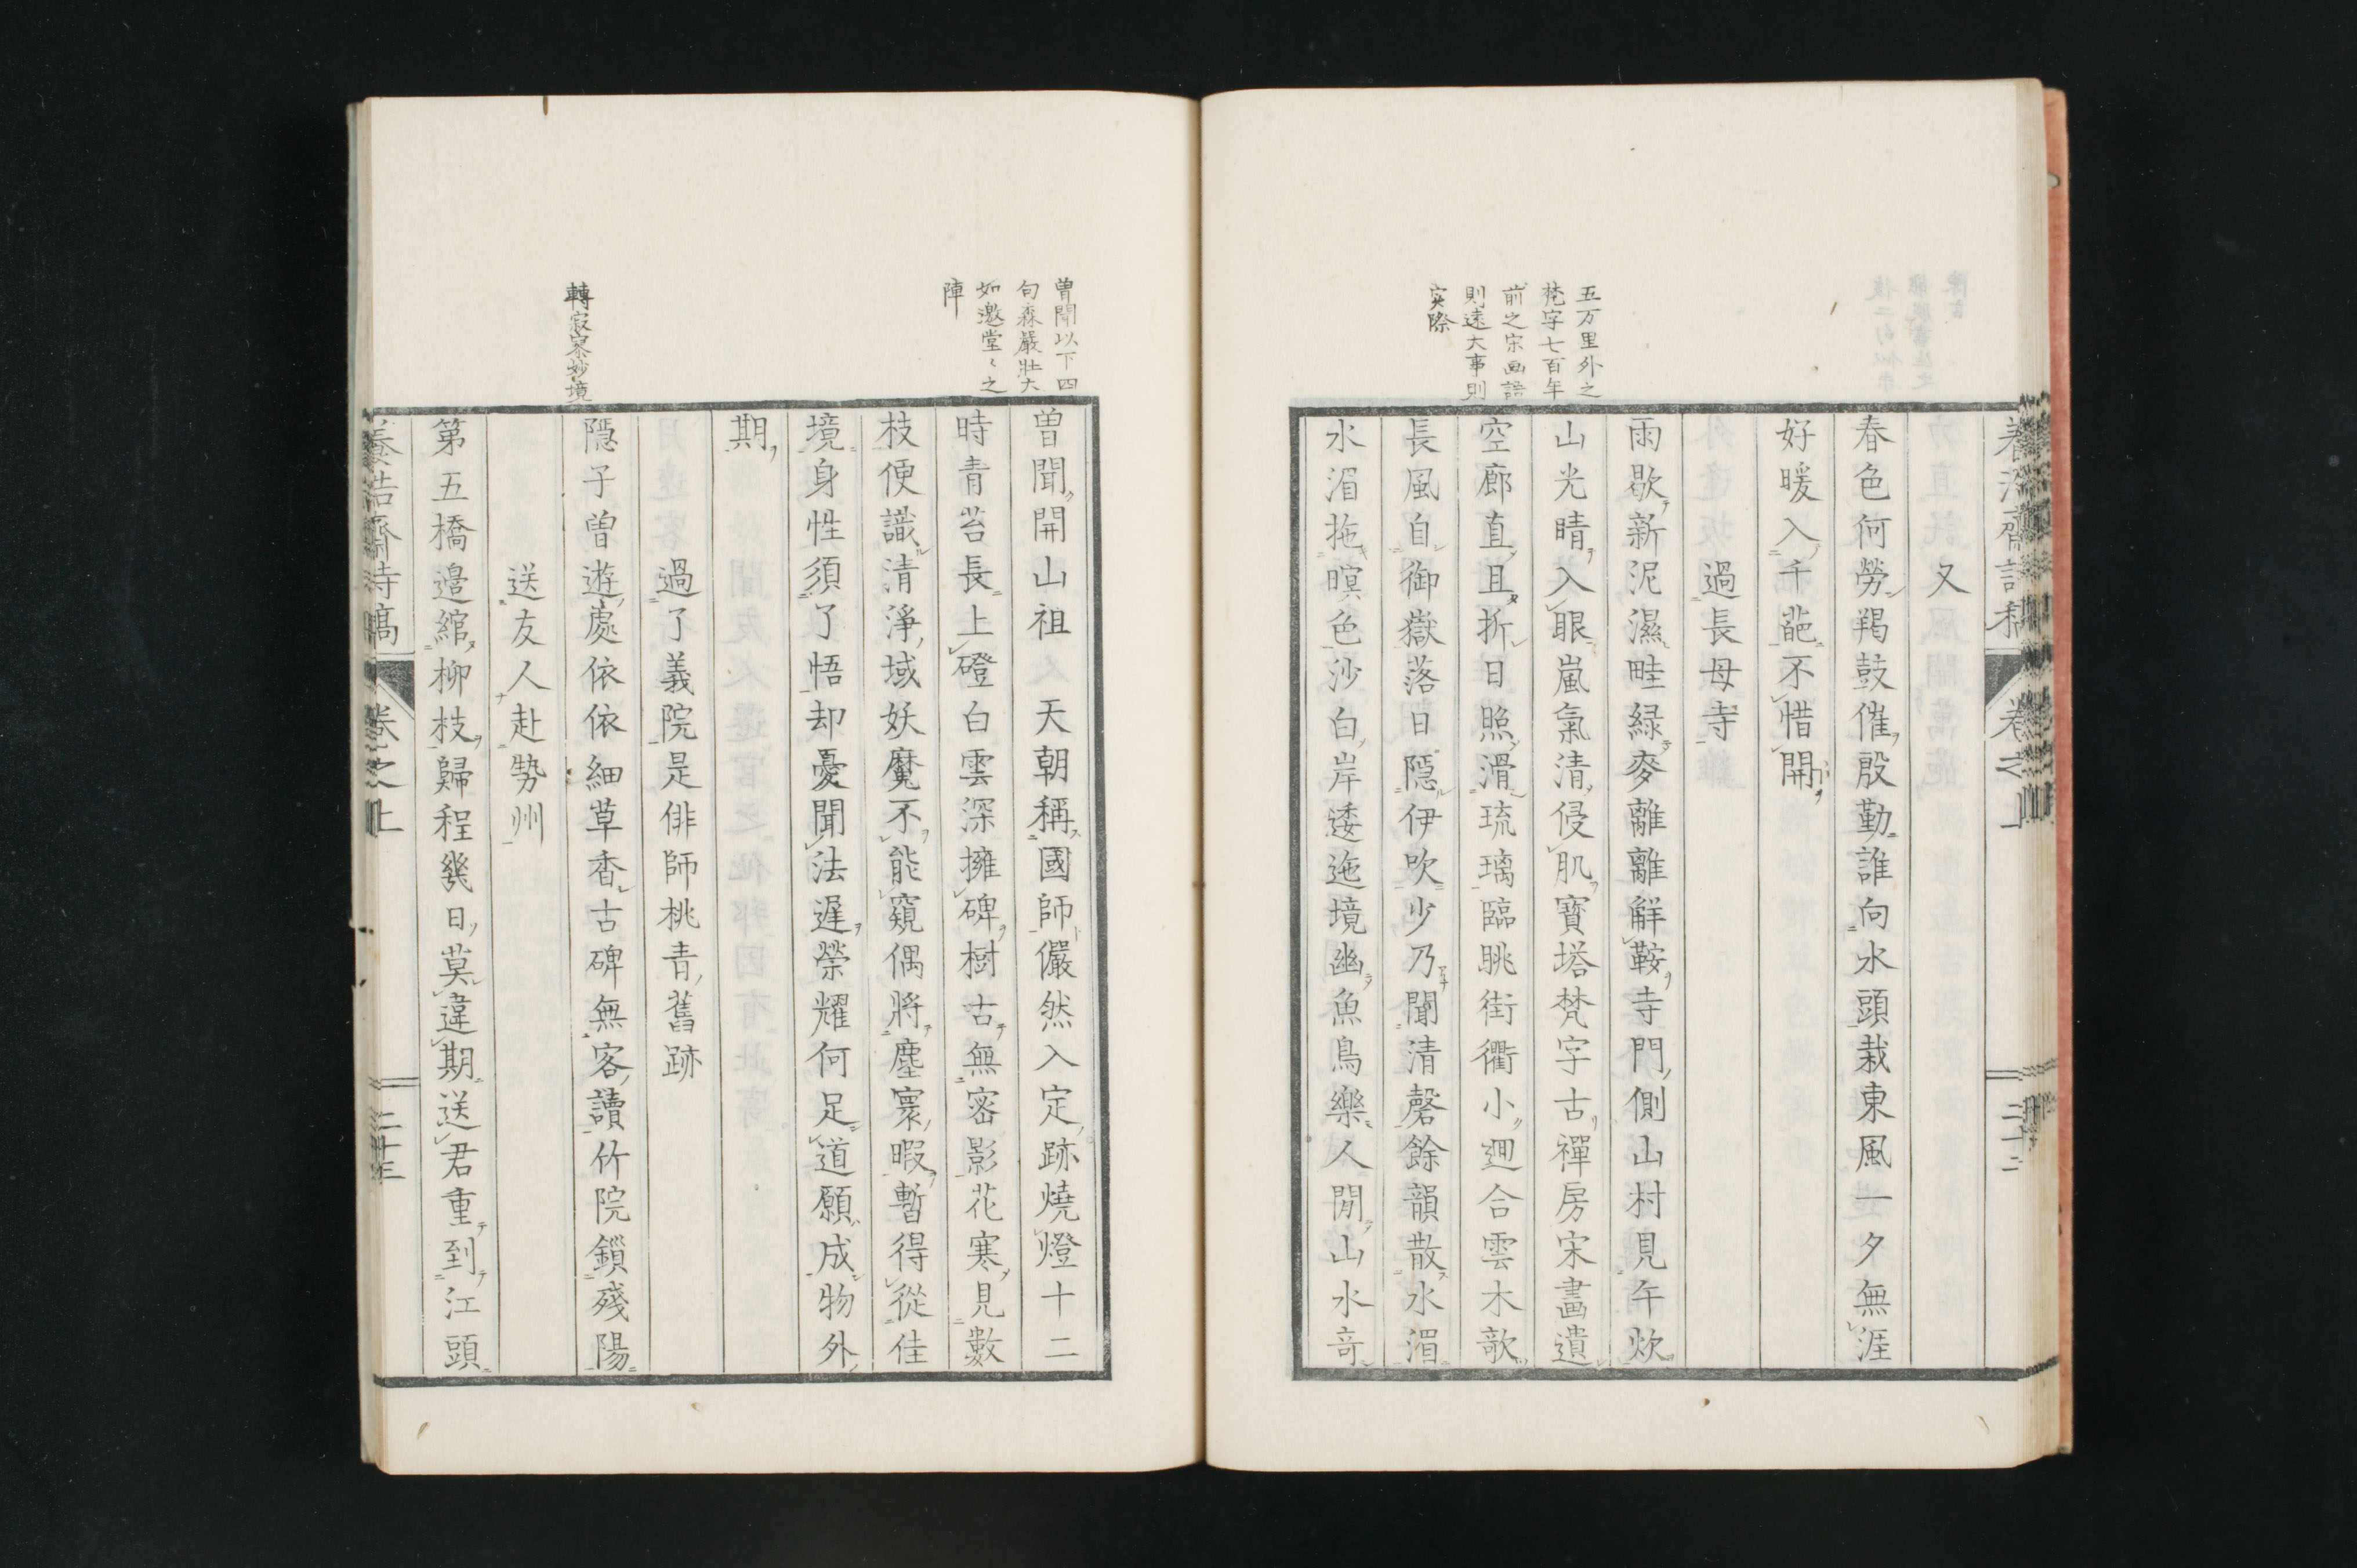 又
春色何勞羯鼓催殷勤誰向水頭栽東風一夕無涯
好暖入千葩不惜開
過長母寺
雨歇新泥濕畦緑麥離離解鞍寺門側山村見午炊
山光晴入眼嵐氣清侵肌寶塔梵字古禪房宋畫遺
空廊直且折日照滑琉璃臨眺街衢小迴合雲木欹
長風自御嶽落日隱伊吹少乃聞清磬餘韻散水湄
水湄拖暝色沙白岸逶迤境幽魚鳥樂人閒山水奇
五万里外之
梵字七百年
前之宋画語
則遠大事則
実際
曽聞開山祖 天朝稱國師儼然入定跡燒燈十二
時青苔長上磴白雲深擁碑樹古無密影花寒見數
枝便識清淨域妖魔不能窺偶將塵寰暇暫得從佳
境身性須了悟却憂聞法遲榮耀何足道願成物外
期
過了義院是俳師桃青舊跡
隱子曽遊處依依細草香古碑無客讀竹院鎖殘陽
送友人赴勢州
第五橋邉綰柳枝歸程幾日莫違期送君重到江頭
曽聞以下四
句森嚴壯大
如邀堂〻之
陣
轉寂寞妙境
養浩齋詩稿 卷之上 二十三